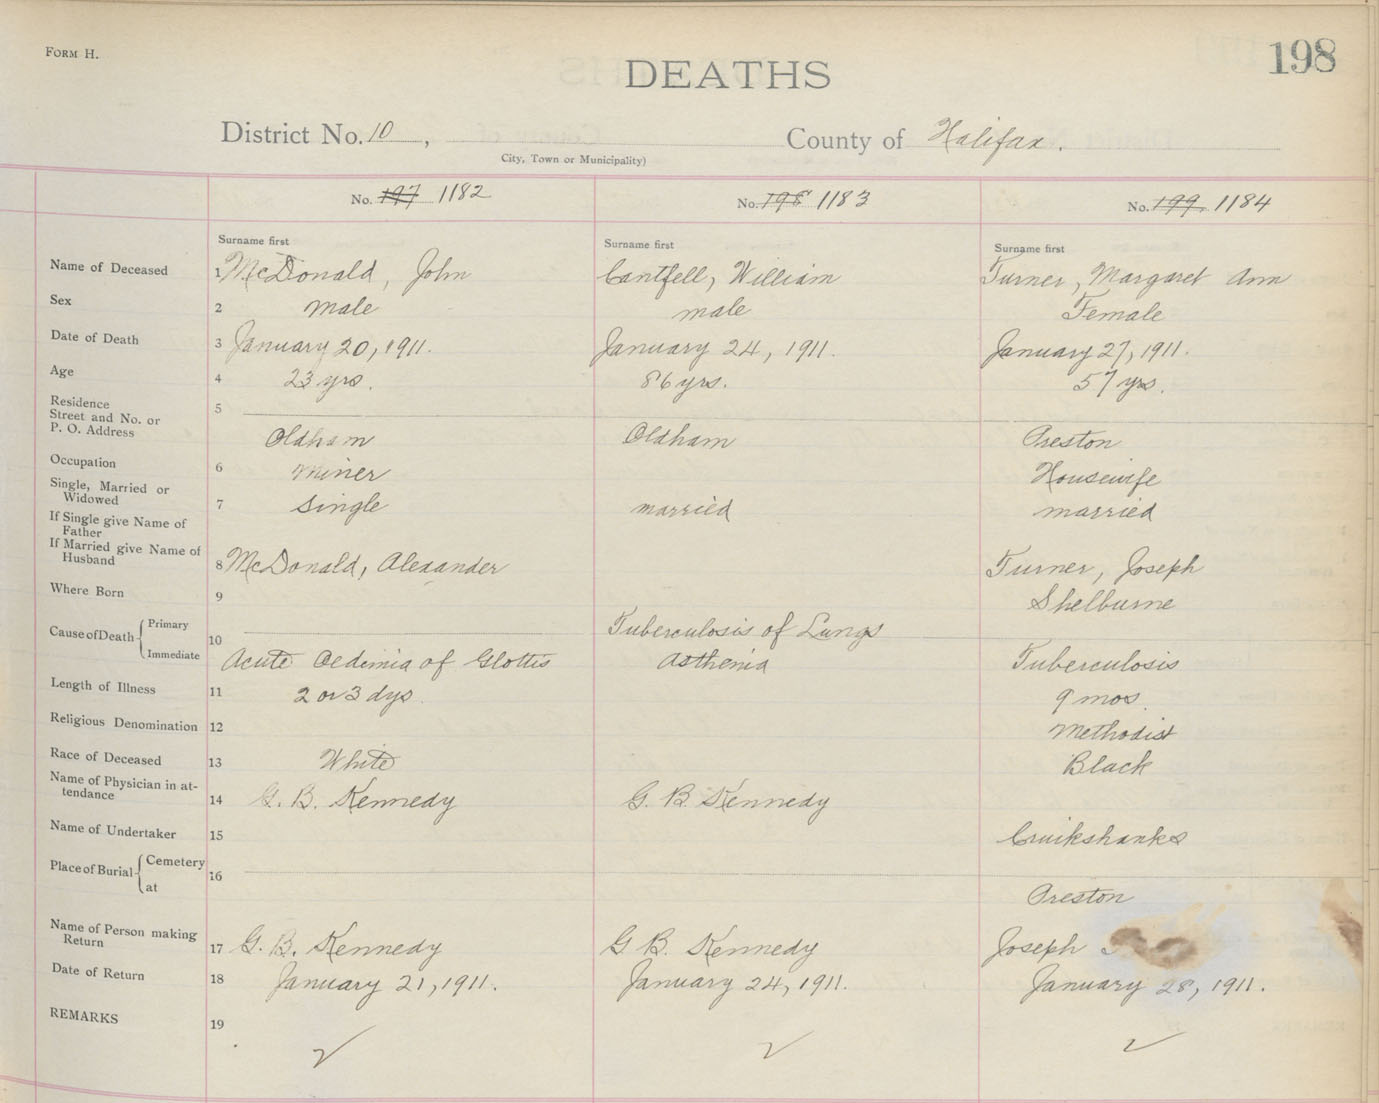 FORM H.
198
DEATHS
District No. 10 , County of Halifax.
City, Town or Municipality)
No. 197 1182 No. 198 1183 No. 199 1184
Surname first Surname first Surname first
Name of Deceased 1 McDonald, John Cantfell, William Turner, Margaret Ann
Sex 2 male male Female
Date of Death 3 January 20, 1911. January 24, 1911. January 27, 1911.
Age 4 23 yrs. 86 yrs. 57 yrs.
Residence 5
Street and No. or
P. O. Address Oldham Oldham Preston
Occupation 6 Miner Housewife
Single, Married or
Widowed 7 Single married married
If Single give Name of
Father
If Married give Name of
Husband 8 McDonald, Alexander Turner, Joseph
Where Born 9 Shelburne
Cause of Death Primary 10 Tuberculosis of Lungs
Immediate Acute Oedimia of Glottis Asthenia Tuberculosis
Length of Illness 11 2 or 3 dys. 9 mos.
Religious Denomination 12 Methodist
Race of Deceased 13 White Black
Name of Physician in at-
tendance 14 G. B. Kennedy G. B Kennedy
Name of Undertaker 15 Cruikshanks
Place of Burial Cemetery 16
at Preston
Name of Person making
Return 17 G. B. Kennedy G B. Kennedy Joseph
Date of Return 18 January 21, 1911. January 24, 1911. January 28, 1911.
REMARKS 19